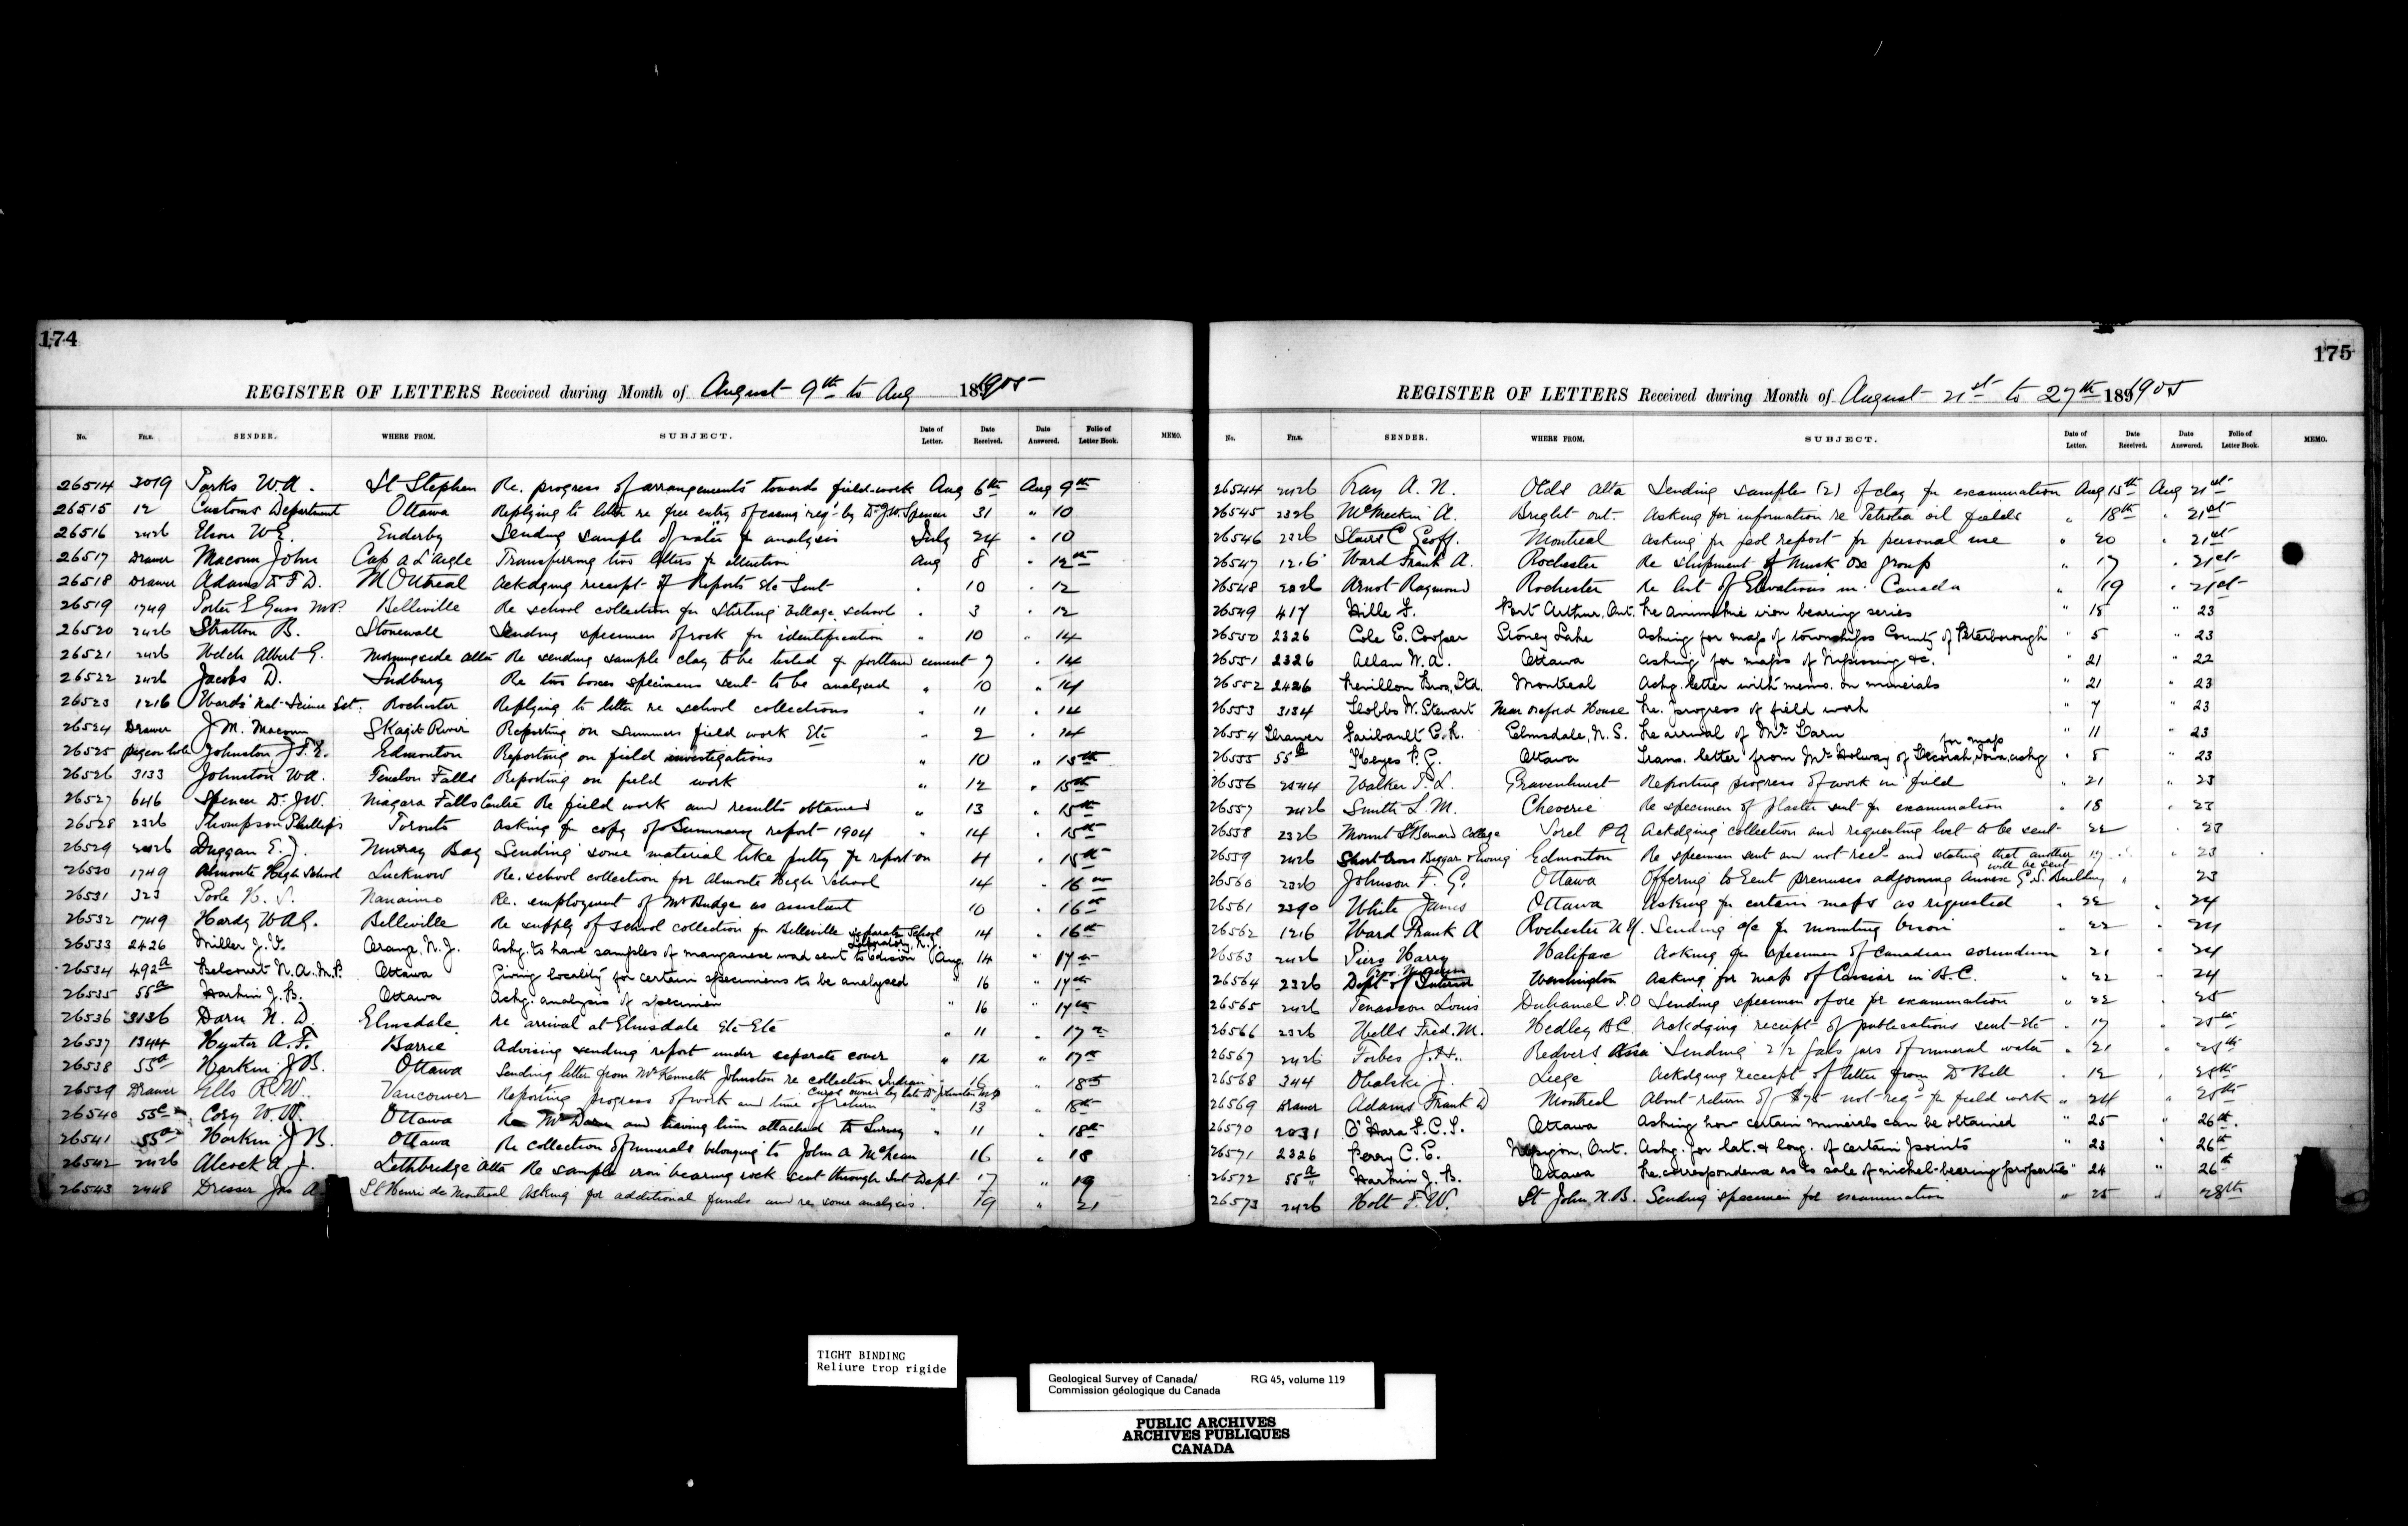 174
REGISTER OF LETTERS Received during Month of August 9th to Aug 1905
No. FILE. SENDER. WHERE FROM. SUBJECT. Date of Letter. Date Received. Date Answered. Folio of Letter Book. MEMO.
26514 3019 Parks W.A. St Stephen Re. progress of arrangements towards field-work Aug 6th Aug 9th
26515 12 Customs Department Ottawa Replying to letter re free entry of casing req' by Dr J.W. Spencer 31 " 10
26516 2426 Elson W.E. Enderby Sending sample of water for analysis July 24 " 10
26517 Drawer Macoun John Cap a L'Aigle Transferring two letters for attention Aug 8 " 12th
26518 Drawer Adams F D. Montreal Ackdging receipt of Reports Etc Sent " 10 " 12
26519 1749 Porter E Guss M.P. Belleville Re school collection for Stirling Village school " 3 " 12
26520 2426 Stratton B. Stonewall Sending specimen of rock for identification " 10 " 14
26521 2426 Welch Albert G. Morningside Alta Re sending sample clay to be tested for portland cement 7 " 14
26522 2426 Jacobs D. Sudbury Re two boxes specimens sent to be analysed " 10 " 14
26523 1216 Ward's Nat-Science Est. Rochester Replying to letter re school collections " 11 " 14
26524 Drawer J.M. Macoun Skagit River Reporting on summers field work Etc " 2 " 14
26525 pigeon hole Johnston J.F.E. Edmonton Reporting on field investigations " 10 " 15th
26526 3133 Johnston W.A. Fenelon Falls Reporting on field work " 12 " 15th
26527 646 Spencer Dr JW. Niagara Falls Centre Re field work and results obtained " 13 " 15th
26528 2326 Thompson Phillips Toronto Asking for copy of Summary report 1904 " 14 " 15th
26529 2426 Duggan E.J. Murray Bay Sending some material like putty for report on 4 " 15th
26530 1749 Almonte High School Lucknow Re. school collection for Almonte High School 14 " 16th
26531 323 Poole H.S. Nanaimo Re. employment of Mr Budge as assistant 10 " 16th
26532 1749 Hardy W.A.G. Belleville Re supply of school collection for Belleville separate School 14 " 16th
26533 2426 Miller J.V. Orange, N.J. Askg. to have samples of manganese wad sent to Edison Laboratory, N.J. Aug. 14 " 17th
26534 492a Belcourt N.A. M.P. Ottawa Giving locality for certain specimens to be analysed " 16 " 17th
26535 55a Harkin J.B. Ottawa Askg. analysis of specimen " 16 17th
26536 3136 Darn N. D. Elmsdale Re arrival at Elmsdale Etc Etc " 11 " 17th
26537 1344 Hunter A.F. Barrie Advising sending report under separate cover " 12 " 17th
26538 55a Harkin J B. Ottawa Sending letter from Mr Kenneth Johnston re collection Indian Curios owned by late Dr Johnston M.P. 16 " 18th
26539 Drawer Ells R.W. Vancouver Reporting progress of work and time of return " 13 " 18th
26540 55a Cory W.W. Ottawa Re Mr Darn and having him attached to Survey " 11 " 18th
26541 55a Harkin J B. Ottawa Re collection of minerals belonging to John A McLean 16 " 18
26542 2426 Alcock A.J. Lethbridge Alta Re sample iron bearing rock sent through Int Dept 17 " 19
26543 2448 Dresser Jno A. St Henri de Montreal Asking for additional funds and re some analysis. 19 " 21
175
REGISTER OF LETTERS Received during Month of August 21st to 27th 1905
No. FILE. SENDER. WHERE FROM. SUBJECT. Date of Letter. Date Received. Date Answered. Folio of Letter Book. MEMO.
26544 2426 Gray A. N. Olds Alta Sending sample (2) of clay for examination Aug 15th Aug 21st
26545 2326 McMeekin A. Bright Ont. Asking for information re Petrolia oil fields " 18th " 21st
26546 2326 Stairs C Geoff. Montreal Asking for geol report for personal use " 20 " 21st
26547 1216 Ward Frank A. Rochester Re shipment of Musk Ox group " 17 " 21st
26548 2326 Arnot Raymond Rochester Re list of Elevations in Canada " 19 " 21st
26549 417 Hille F. Port Arthur, Ont. Re Animikie iron bearing series " 18 " 23
26550 2326 Cole E. Cooper Stoney Lake Asking for map of townships County of Peterborough " 5 " 23
26551 2326 Allan W.A. Ottawa Asking for maps of Nipissing &c. " 21 " 22
26552 2426 Revillon Bros, Ltd. Montreal Askg. letter with memo. on minerals " 21 " 23
26553 3134 Hobbs W. Stewart Near Oxford House Re. progress of field work " 7 " 23
26554 Drawer Faribault E.R. Elmsdale, N.S. Re arrival of Mr. Darn " 11 " 23
26555 55a Keyes P.G. Ottawa Trans. letter from Mr. Holway of Decorah, Iowa, askg for map " 5 23
26556 2544 Walker T.L. Gravenhurst Reporting progress of work in field " 21 " 23
26557 2426 Smith L.M. Cheverie Re specimen of plaster sent for examination " 18 " 23
26558 2326 Mount St Bernard College Sorel P.Q Ackdging collection and requesting list to be sent 22 " 23
26559 2426 Short Cross Biggar & Ewing Edmonton Re specimen sent and not recd and stating that another will be sent 19 " 23
26560 2326 Johnson F. G. Ottawa Offering to Rent premises adjoining Annex G.S. Building " 23
26561 2390 White James Ottawa Asking for certain maps as requested " 22 " 24
26562 1216 Ward Frank A Rochester N.Y. Sending a/c for mounting bison " 22 " 24
26563 2426 Piers Harry Prov. Museum Halifax Asking for specimen of Canadian corundum 21 " 24
26564 2326 Dept of Interior Washington Asking for map of Cassiar in B.C. " 22 " 24
26565 2426 Tenasson Louis Duhamel P.O Sending specimen of ore for examination " 22 " 25
26566 2326 Wells Fred. M. Hedley B.C. Ackdging receipt of publications sent Etc " 17 " 25th
26567 2426 Forbes J.H. Redvers Assa Sending 2 1/2 gals jars of mineral water " 21 " 25th
26568 344 Obalski J. Liege Ackdging receipt of letter from Dr Bell " 12 " 25th
26569 Drawer Adams Frank D Montreal About return of $75 not req'd for field work " 24 " 25th
26570 2031 O'Hara F.C.T. Ottawa Asking how certain minerals can be obtained " 25 " 26th.
26571 2326 Perry C.E. Nepigon, Ont. Askg. for lat. & long. of certain points " 23 " 26th
26572 55a Harkin J.B. Ottawa Re. correspondence as to sale of nickel-bearing properties " 24 " 26th
26573 2426 Holt F.W. St John N.B. Sending specimen for examination " 25 " 28th
TIGHT BINDING
Reliure trop rigide
Geological Survey of Canada/ RG 45, volume 119
Commission géologique du Canada
PUBLIC ARCHIVES
ARCHIVES PUBLIQUES
CANADA